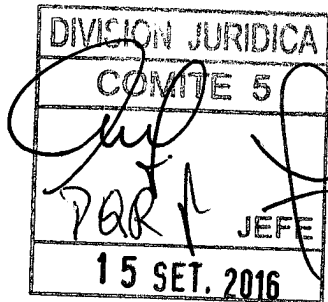 DIVISION JURIDICA
COMITE 5
JEFE
15 SET. 2016